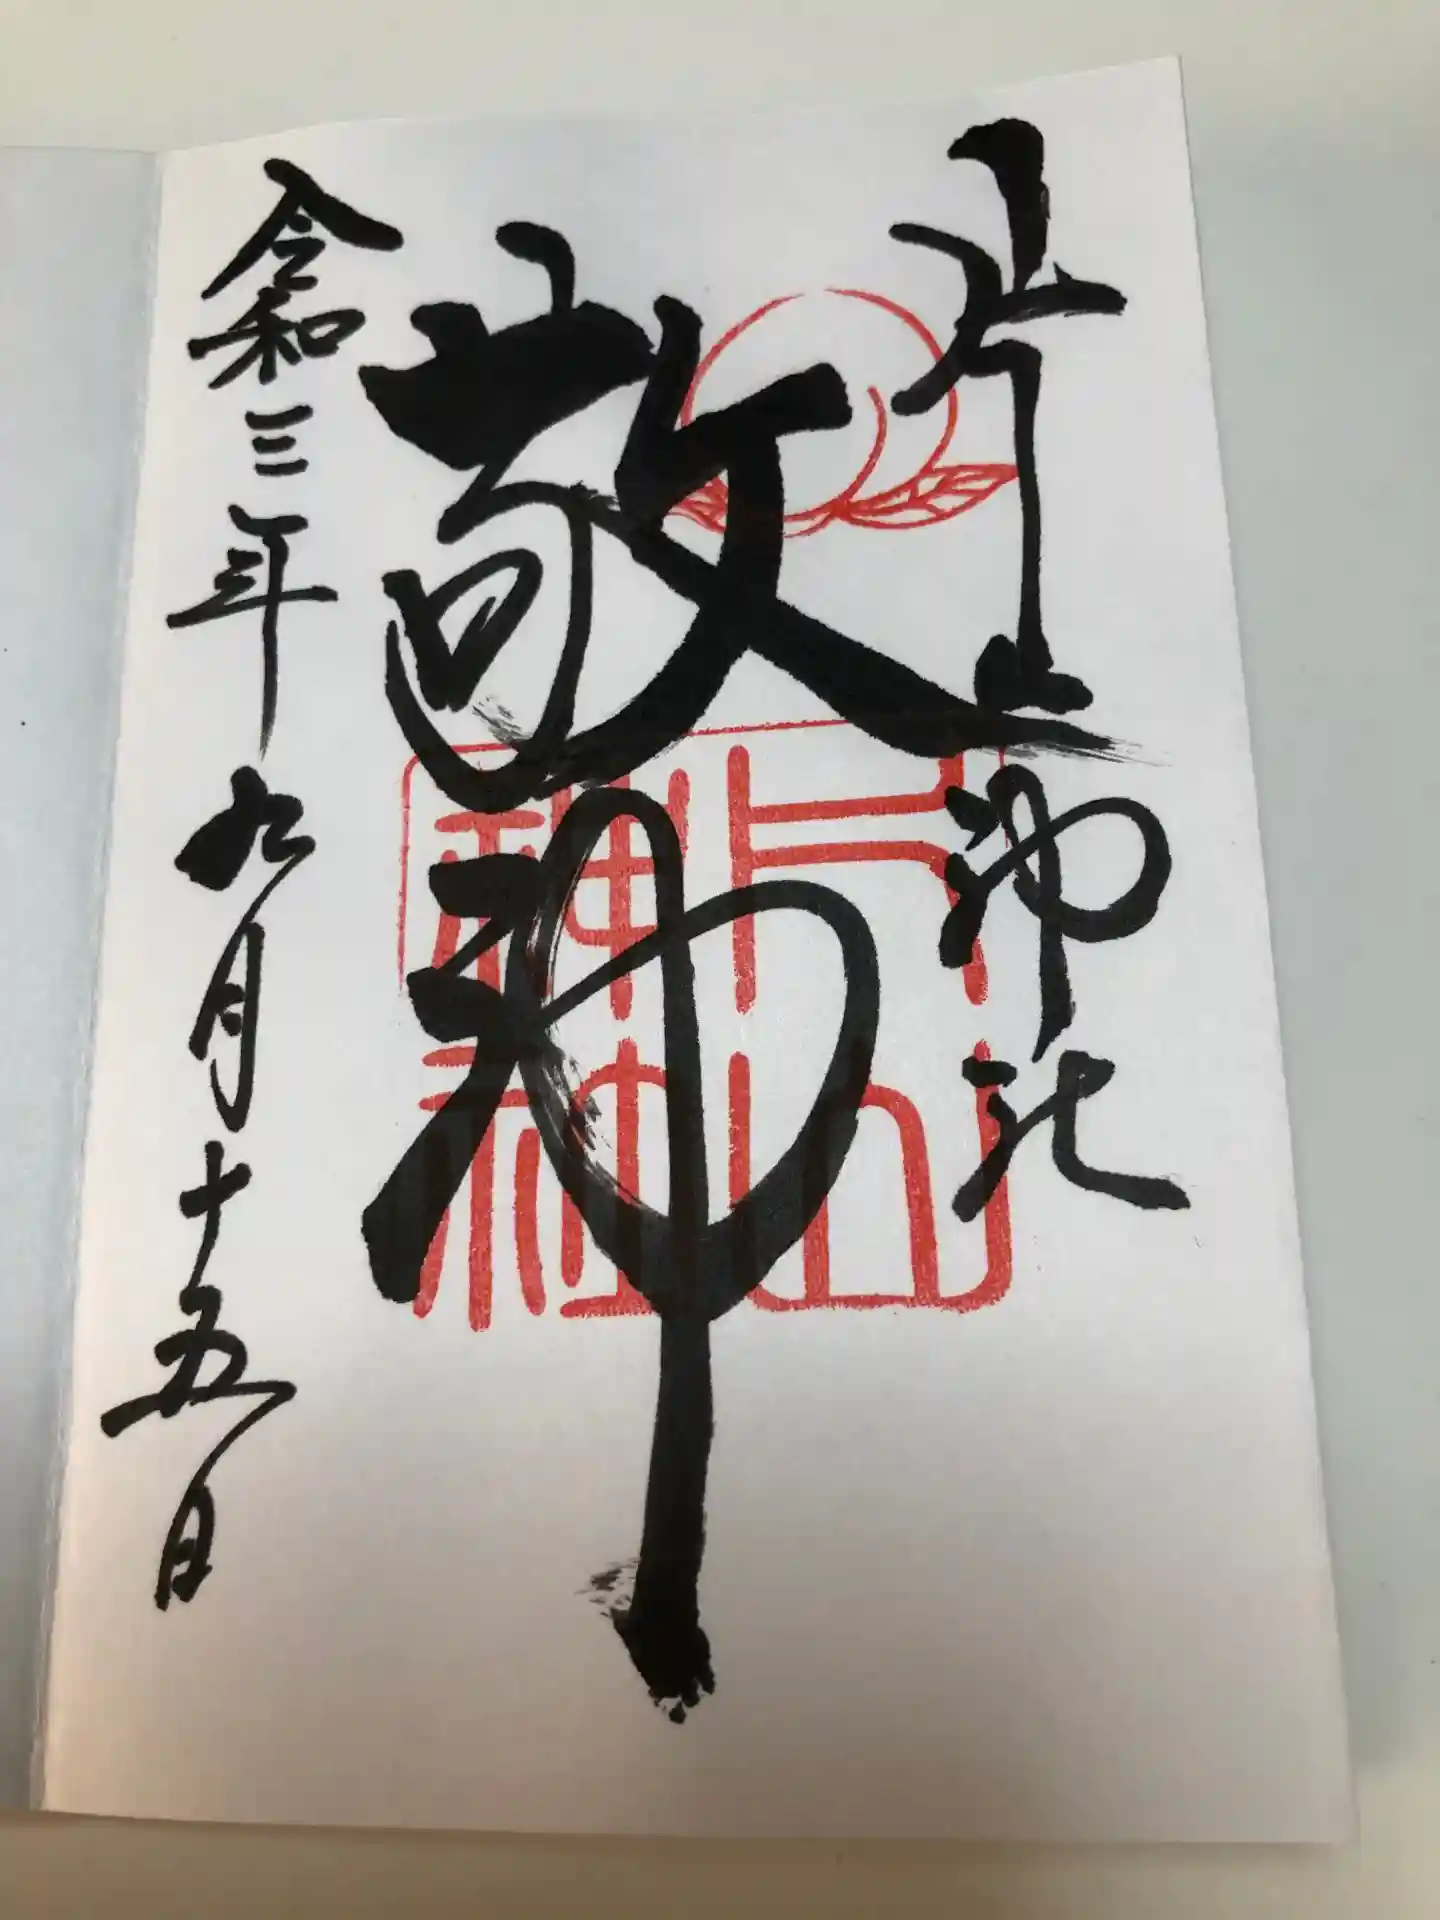 片山神社
敬神
令和三年九月十五日
片山
神社